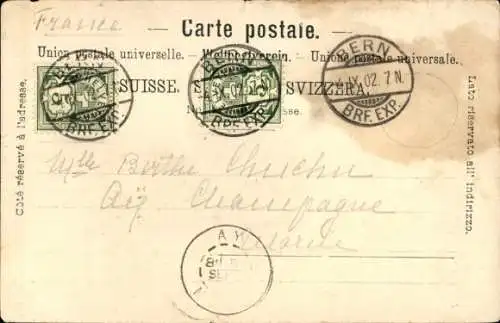 France
Carte postale.
Union postale universelle. — Weltpostverein. — Unione postale universale.
SUISSE. SVIZZERA.
BERN
BRF. EXP.
BERN
IX. 02.
BRF. EXP.
BERN
IX. 02. 7 N.
BRF. EXP.
Côté réservé à l'adresse.
Lato riservato all' indirizzo.
Mlle Berthe
Aÿ Champagne
Marne
AY